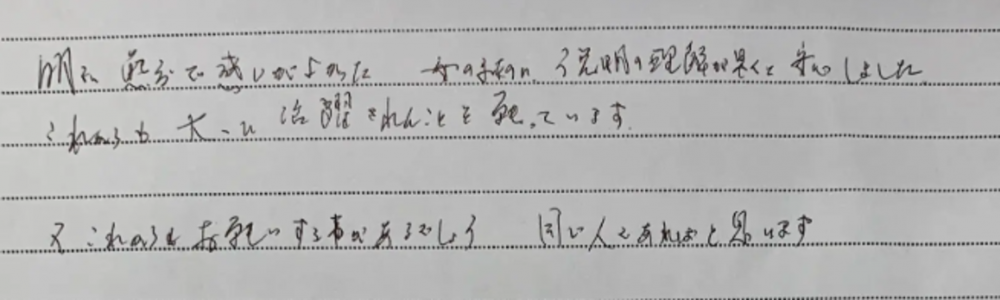 明るい気分で感じがよかった 女の子なのに、説明の理解が早くて安心しました
これからも大いに活躍されんことを願っています。
又これからもお願いする事があるでしょう 同じ人であればと思います